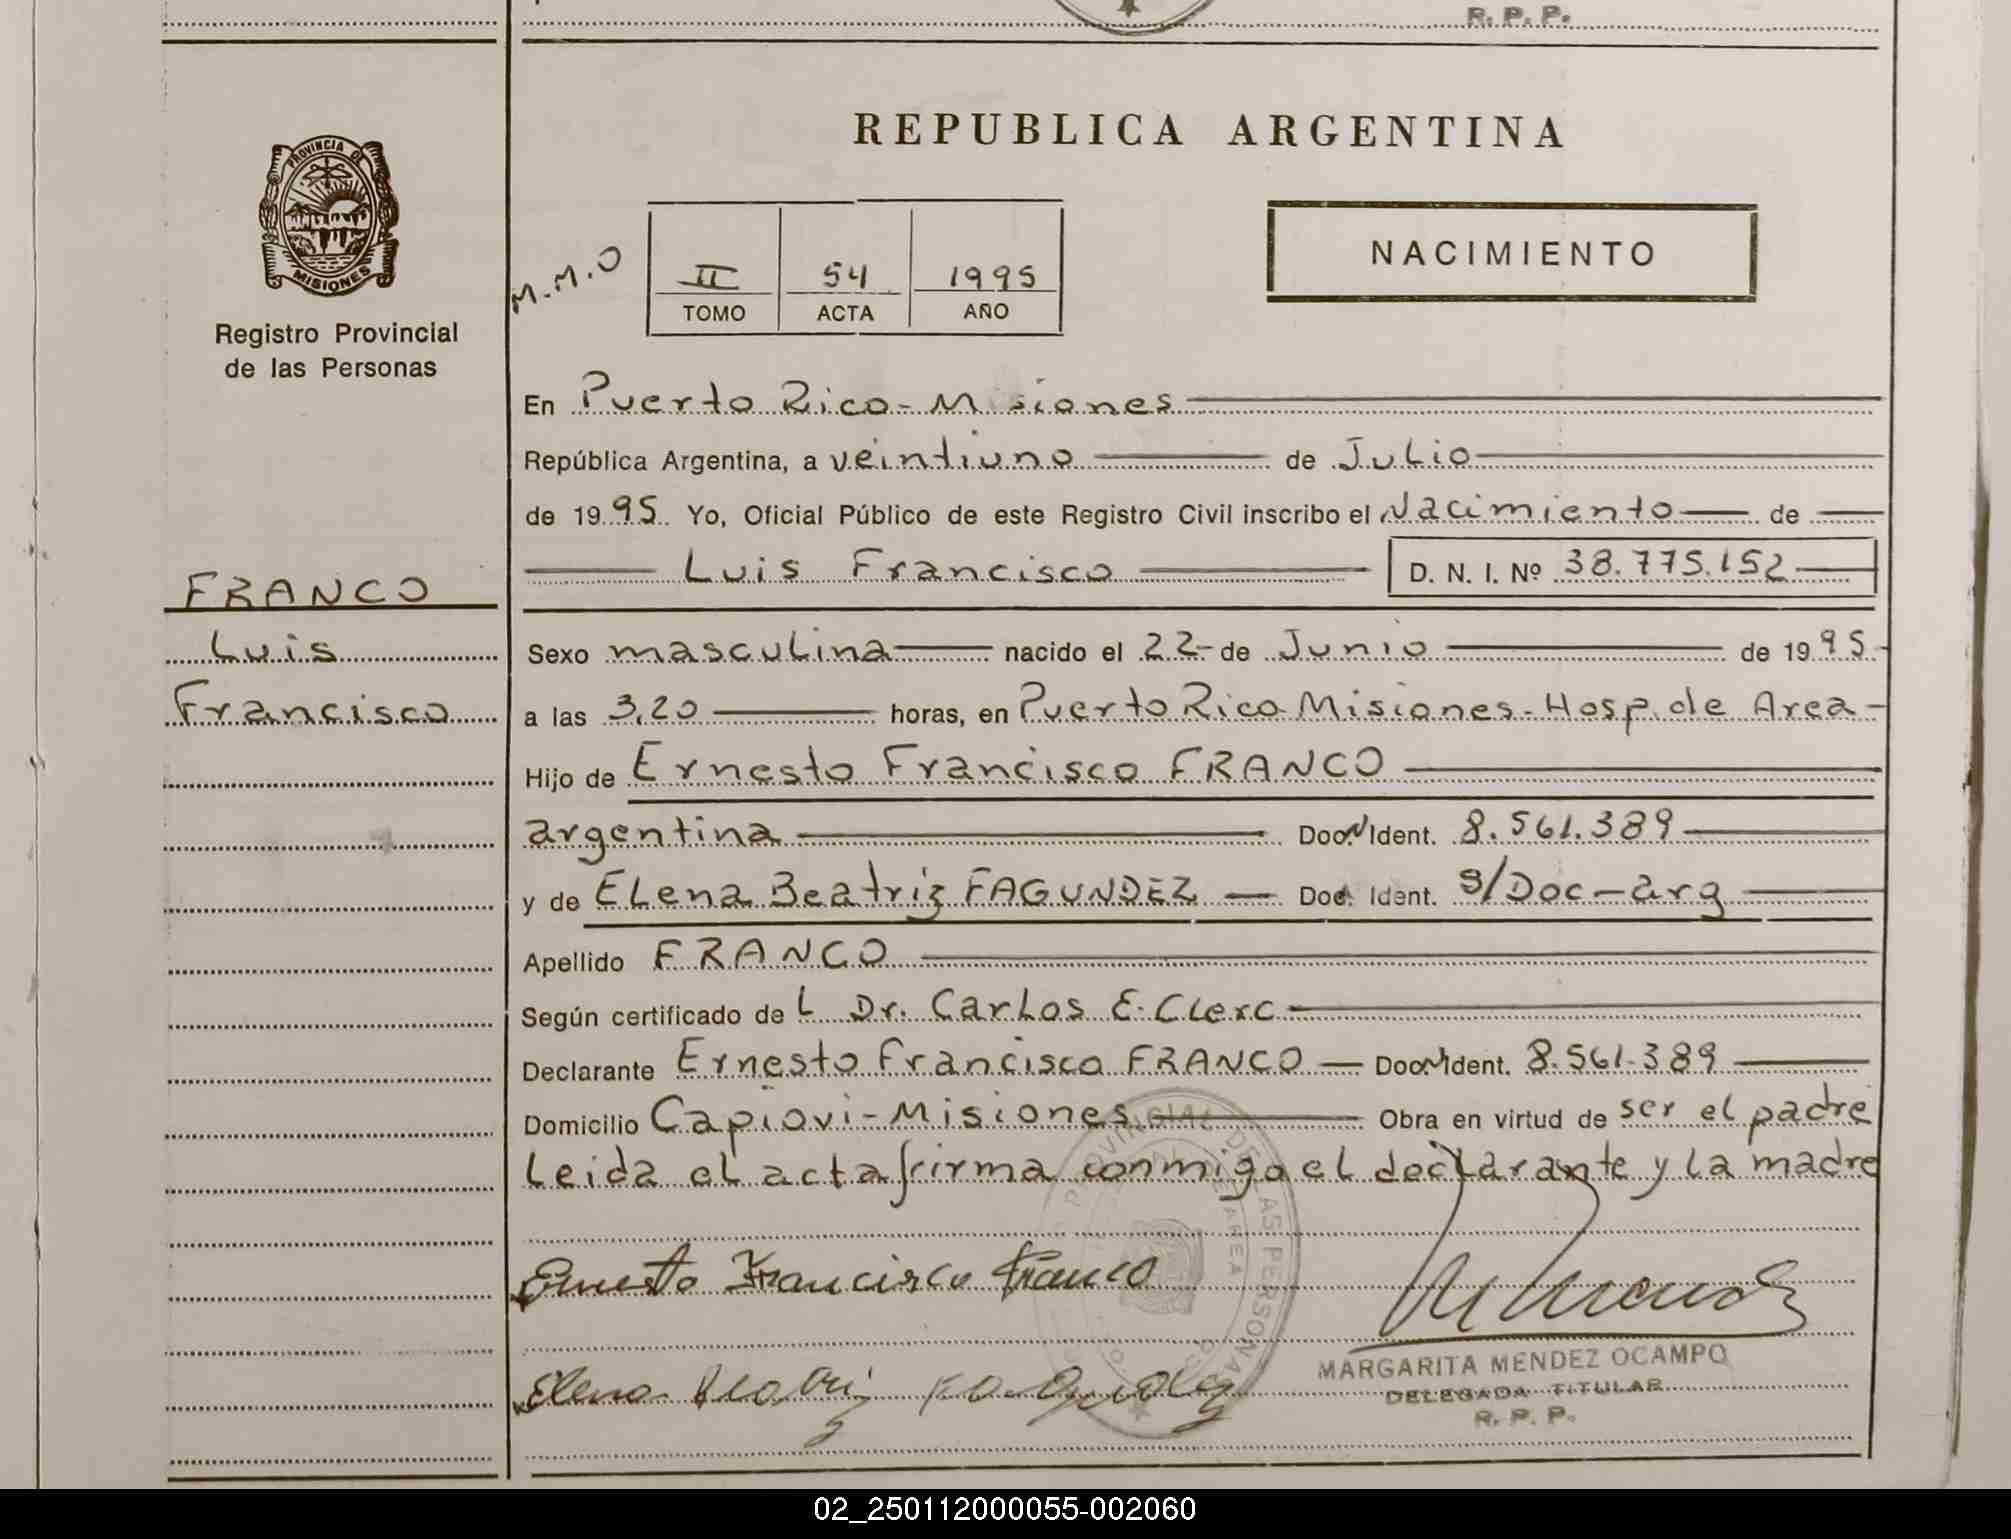 R. P. P.
REPUBLICA ARGENTINA
PROVINCIA DE
MISIONES
Registro Provincial
de las Personas
M.M.O
II 54 1995
TOMO ACTA AÑO
NACIMIENTO
En Puerto Rico - Misiones
República Argentina, a veintiuno de Julio
de 1995 Yo, Oficial Público de este Registro Civil inscribo el Nacimiento de
Luis Francisco D. N. I. Nº 38.775.152
FRANCO
Luis
Francisco
Sexo masculina nacido el 22 de Junio de 1995
a las 3,20 horas, en Puerto Rico Misiones - Hosp. de Area -
Hijo de Ernesto Francisco FRANCO
argentina Doc N Ident. 8.561.389
y de Elena Beatriz FAGUNDEZ Doc. Ident. s/Doc - arg
Apellido FRANCO
Según certificado de L Dr. Carlos E. Clerc
Declarante Ernesto Francisco FRANCO Doc N Ident. 8.561.389
Domicilio Capiovi - Misiones Obra en virtud de ser el padre
Leida el acta firma conmigo el declarante y la madre
Ernesto Francisco Franco
Elena Beatriz Fagundez
MARGARITA MENDEZ OCAMPO
DELEGADA TITULAR
R. P. P.
02_250112000055-002060